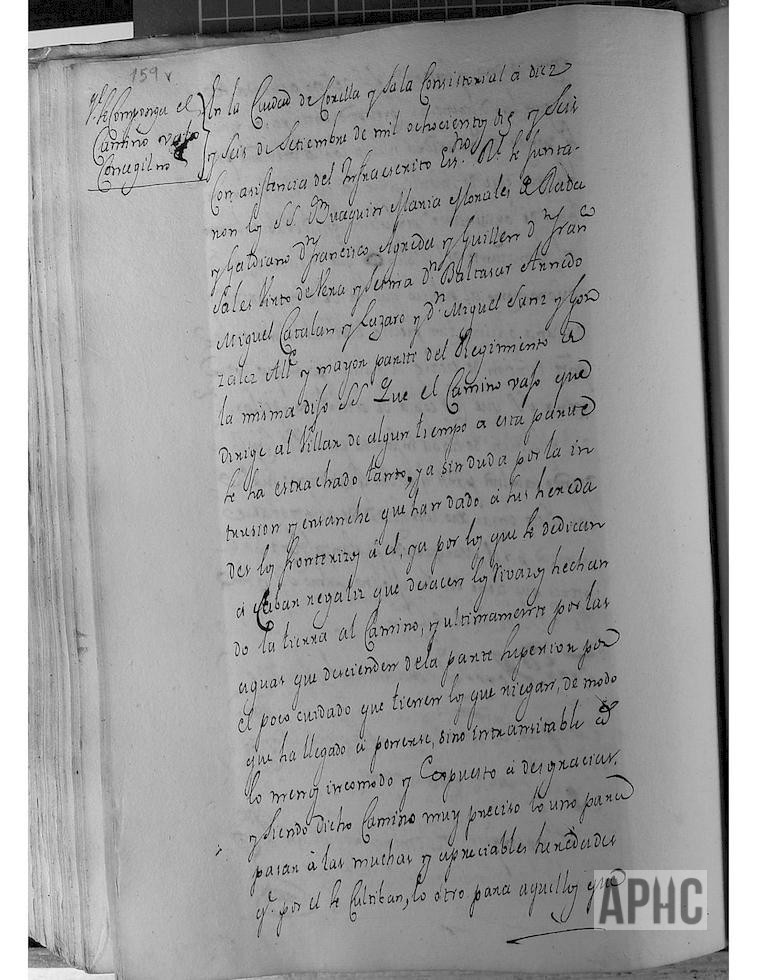 159 v
qe. se componga el
Camino vajo
Concegil no
En la Ciudad de Corella y Sala Consistorial a diez
y seis de Setiembre de mil ochocientos diez y seis
con asistencia del Infraescrito Essno. Rl. se junta-
ron los SS. Dn Joaquin Maria Morales de Rada
y Gaztiano Dn. Francisco Agreda y Guillen Dn. Fran
Sales Virto de Vera y Dn. Baltasar Arnedo
Miguel Catalan y Lazaro y Dn. Miguel Sanz y Gon
zalez Alle. y mayor parte del Regimiento de
la misma dijo SS. Que el Camino vajo que
dirige al Villar de algun tiempo a esta parte
se ha estrachado tanto, ya sin duda por la in
trusion y ensanche que han dado a sus hereda
des los fronterizos a el, ya por los que se dedican
a cabar regaliz que desacen los rivazos hechan
do la tierra al Camino, y ultimamente por las
aguas que descienden de la parte superior por
el poco cuidado que tienen los que riegan, de modo
que ha llegado a ponerse, sino intransitable a
lo menos incomodo y expuesto a desgracias.
y siendo dicho Camino muy preciso lo uno para
pasar à las muchas y apreciables heredades
qe. por el se cultiban, lo otro para aquellos que
APHC